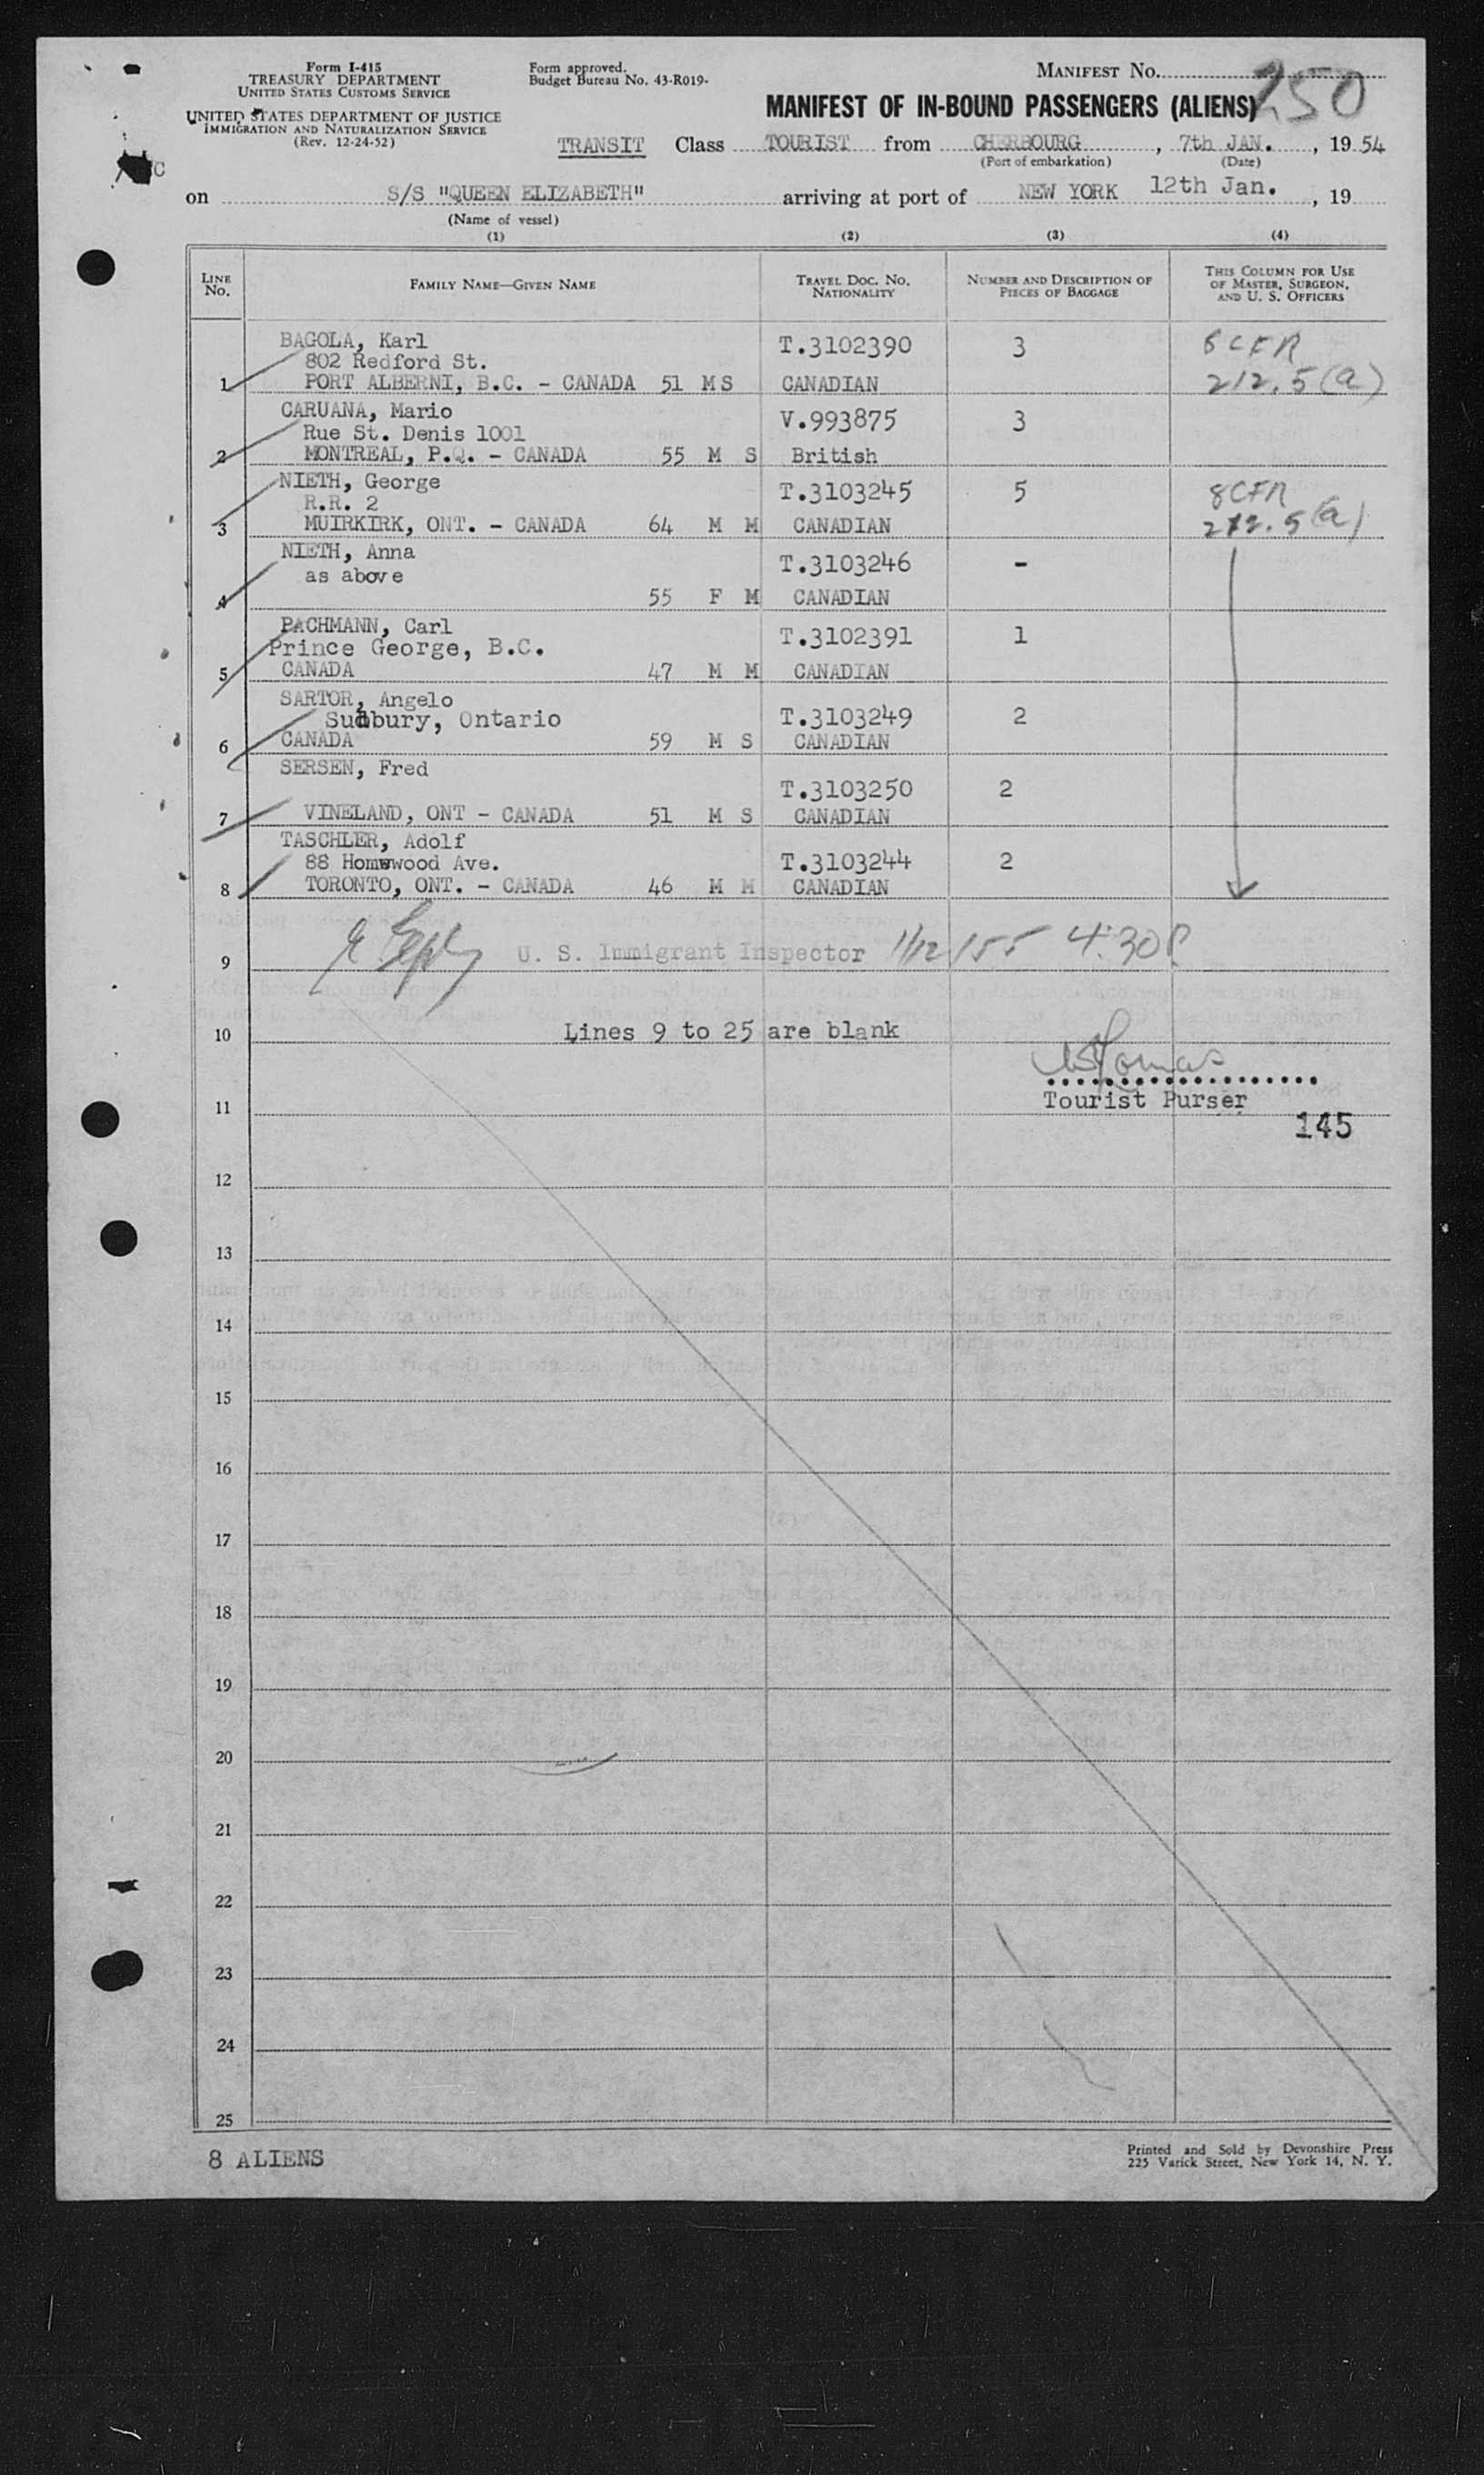 Form I-415
TREASURY DEPARTMENT
UNITED STATES CUSTOMS SERVICE
UNITED STATES DEPARTMENT OF JUSTICE
IMMIGRATION AND NATURALIZATION SERVICE
(Rev. 12-24-52)
Form approved.
Budget Bureau No. 43-R019-
MANIFEST No. 250
MANIFEST OF IN-BOUND PASSENGERS (ALIENS)
TRANSIT Class TOURIST from CHERBOURG, 7th JAN., 19 54
(Port of embarkation) (Date)
on S/S "QUEEN ELIZABETH" arriving at port of NEW YORK 12th Jan., 19
(Name of vessel)
(1) (2) (3) (4)
LINE No. FAMILY NAME—GIVEN NAME TRAVEL DOC. NO. NATIONALITY NUMBER AND DESCRIPTION OF PIECES OF BAGGAGE THIS COLUMN FOR USE OF MASTER, SURGEON, AND U. S. OFFICERS
BAGOLA, Karl T.3102390 3 8 CFR
802 Redford St.
1 PORT ALBERNI, B.C. - CANADA 51 M S CANADIAN 212.5(a)
CARUANA, Mario V.993875 3
Rue St. Denis 1001
2 MONTREAL, P.Q. - CANADA 55 M S British
NIETH, George T.3103245 5 8 CFR
R.R. 2
3 MUIRKIRK, ONT. - CANADA 64 M M CANADIAN 212.5(a)
NIETH, Anna T.3103246 -
as above
4 55 F M CANADIAN
PACHMANN, Carl T.3102391 1
Prince George, B.C.
5 CANADA 47 M M CANADIAN
SARTOR, Angelo
Sudbury, Ontario T.3103249 2
6 CANADA 59 M S CANADIAN
SERSEN, Fred
T.3103250 2
7 VINELAND, ONT - CANADA 51 M S CANADIAN
TASCHLER, Adolf
88 Homewood Ave. T.3103244 2
8 TORONTO, ONT. - CANADA 46 M M CANADIAN
9 U. S. Immigrant Inspector 1/12/55 4:30P
10 Lines 9 to 25 are blank
11 Tourist Purser
145
12
13
14
15
16
17
18
19
20
21
22
23
24
25
8 ALIENS
Printed and Sold by Devonshire Press
225 Varick Street, New York 14, N. Y.